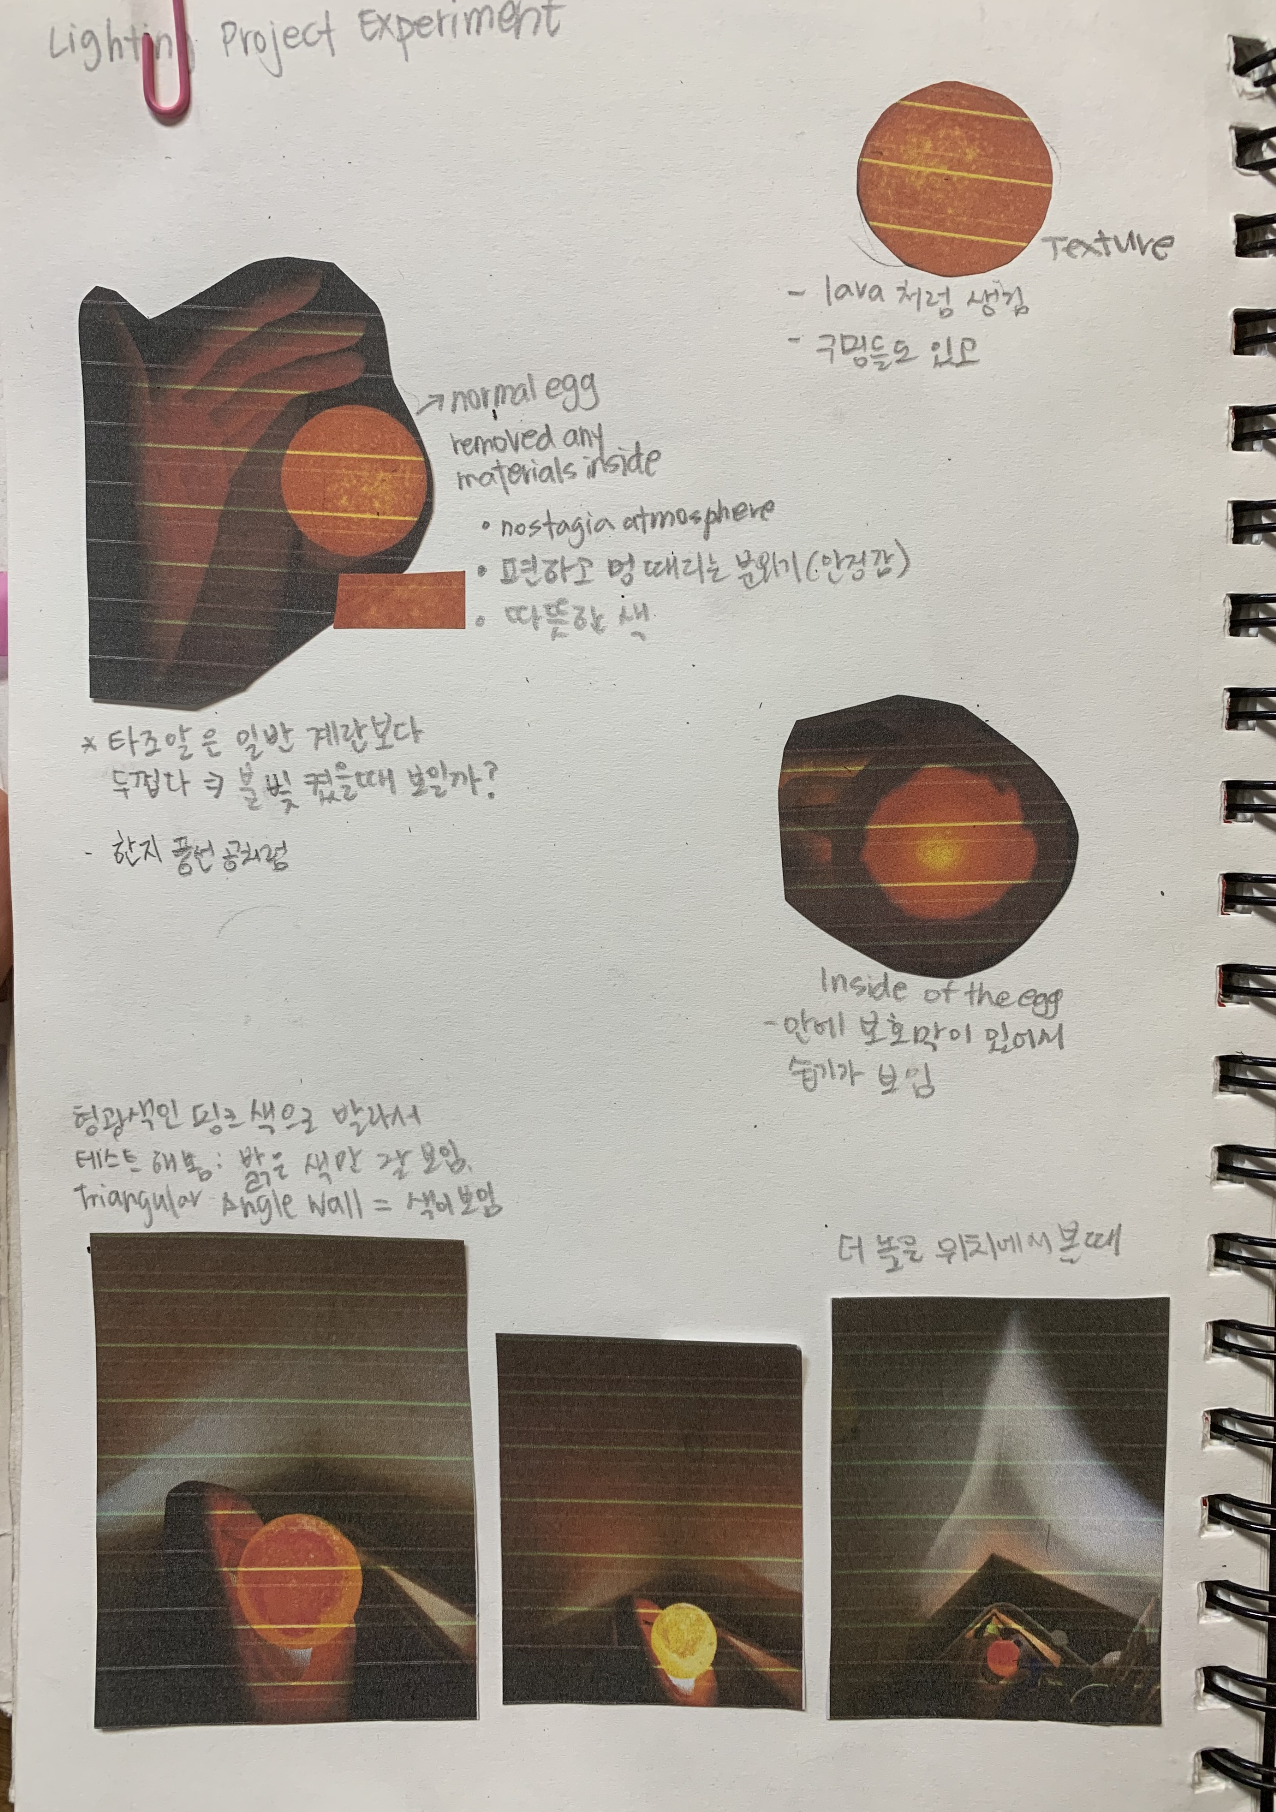 Lighting Project Experiment
Texture
- lava 처럼 생김
- 구멍들도 있고
→ normal egg
removed any
materials inside
• nostagia atmosphere
• 편하고 멍 때리는 분위기 (안정감)
• 따뜻한 색
* 타조알은 일반 계란보다
두껍다 → 불빛 켰을때 보일까?
- 한지 풍선 공처럼
Inside of the egg
- 안에 보호막이 있어서
습기가 보임
형광색인 핑크색으로 발라서
테스트 해봄: 밝은 색만 잘 보임.
Triangular Angle Wall = 색이 보임
더 높은 위치에서 본때